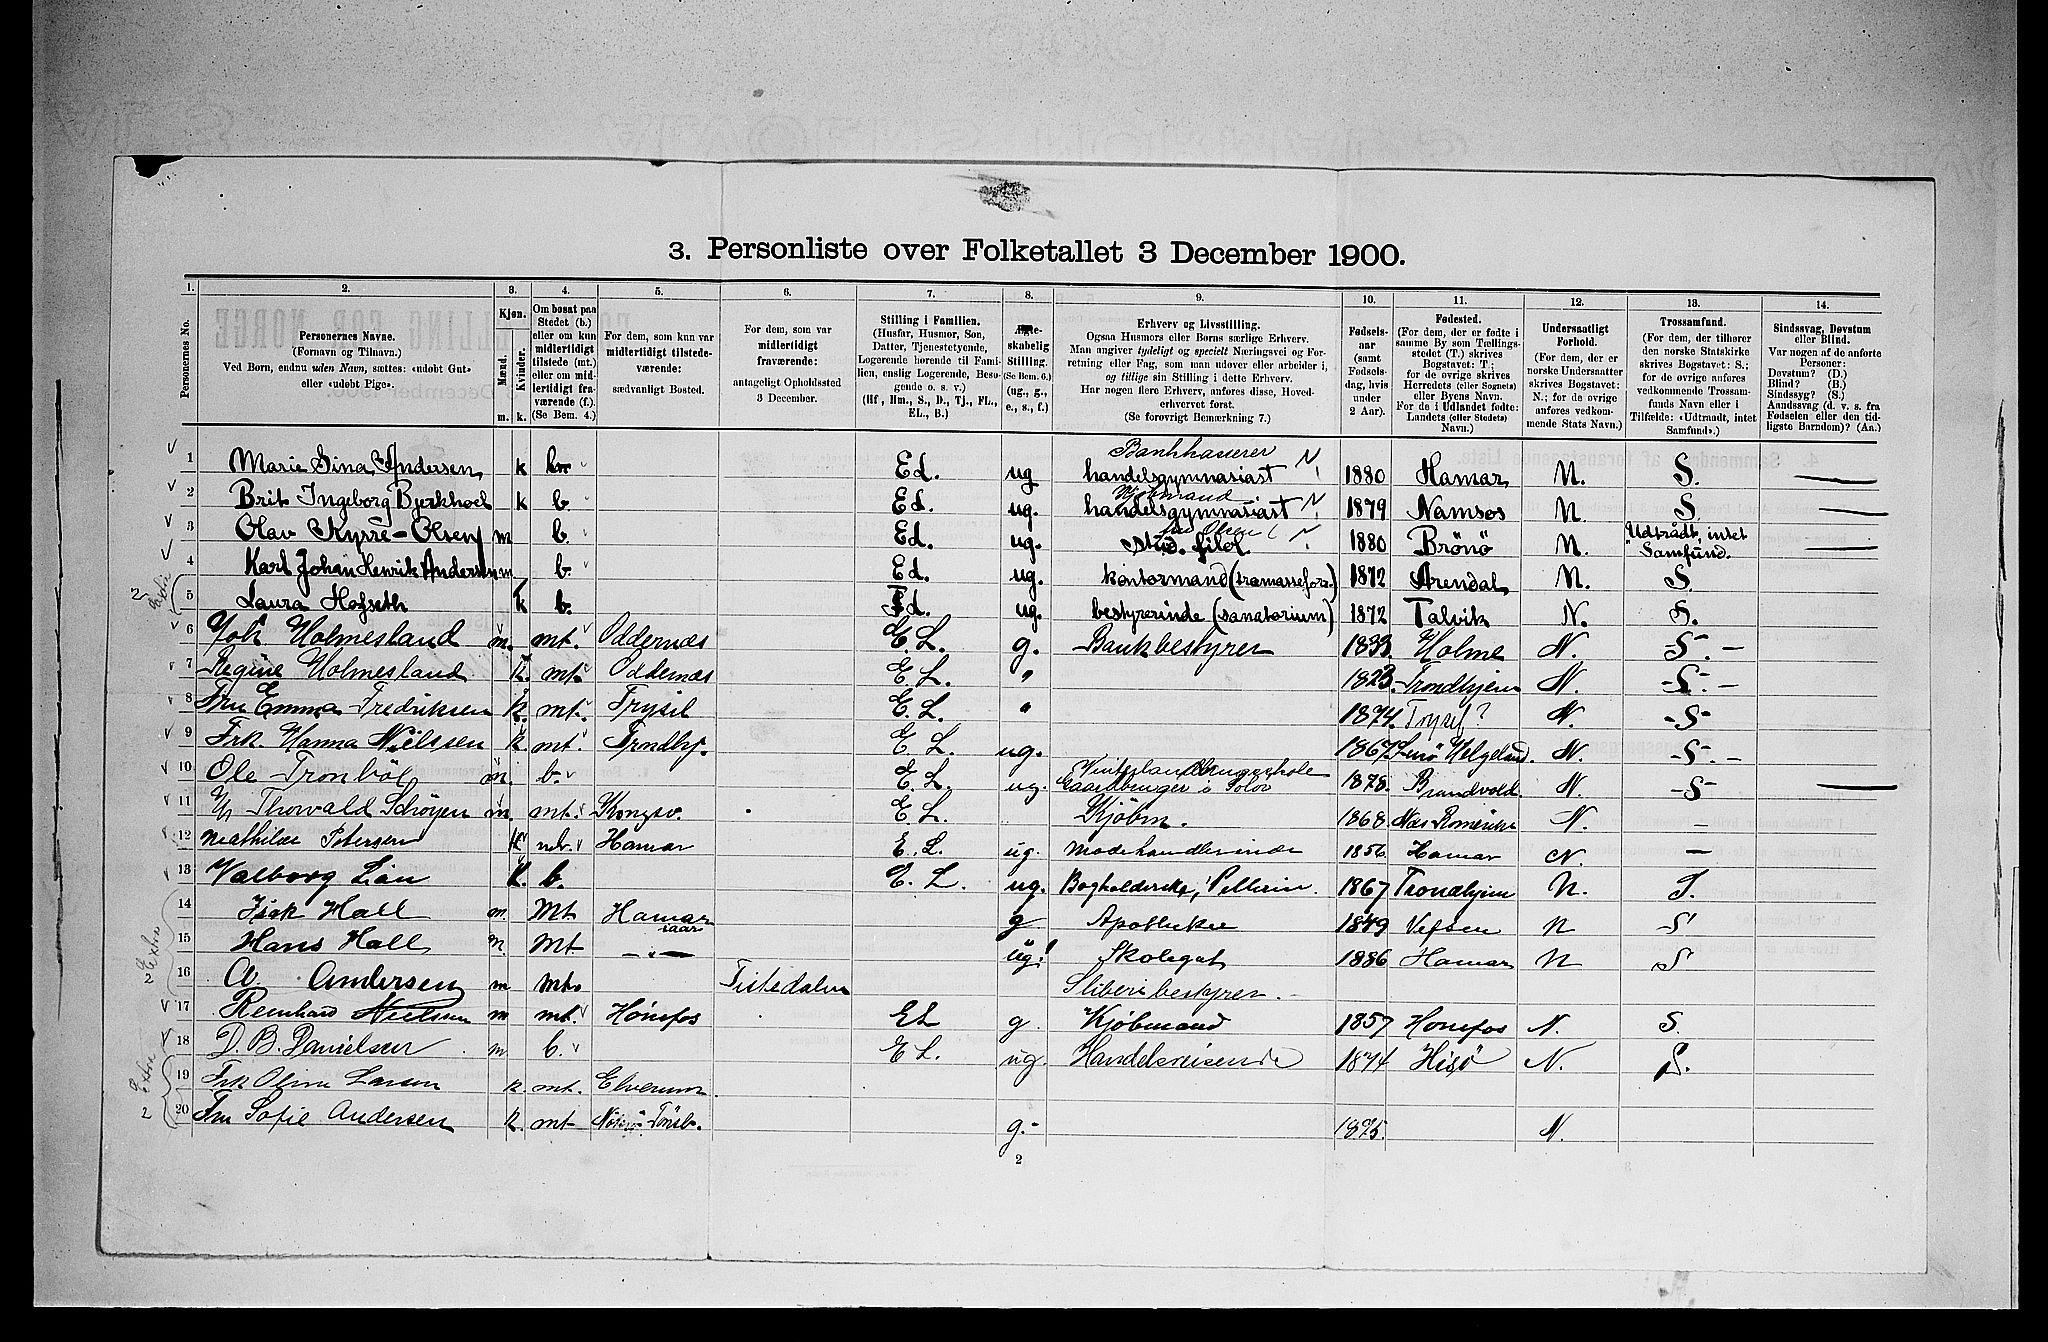 3. Personliste over Folketallet 3 December 1900.
1. 2. 3. 4. 5. 6. 7. 8. 9. 10. 11. 12. 13. 14.
Personernes No.
Personernes Navne.
(Fornavn og Tilnavn.)
Ved Børn, endnu uden Navn, sættes: «udøbt Gut»
eller «udøbt Pige».
Kjøn.
Mænd. Kvinder.
m. k.
Om bosat paa
Stedet (b.)
eller om kun
midlertidigt
tilstede (mt.)
eller om mid-
lertidigt fra-
værende (f.).
(Se Bem. 4.)
For dem, som kun var
midlertidigt tilstede-
værende:
sædvanligt Bosted.
For dem, som var
midlertidigt
fraværende:
antageligt Opholdssted
3 December.
Stilling i Familien.
(Husfar, Husmor, Søn,
Datter, Tjenestetyende,
Logerende hørende til Fami-
lien, enslig Logerende, Besø-
gende o. s. v.)
(Hf., Hm., S., D., Tj., FL.,
EL., B.)
skabelig
Stilling.
(Se Bem. 6.)
(ug., g.,
e., s., f.)
Erhverv og Livsstilling.
Ogsaa Husmors eller Børns særlige Erhverv.
Man angiver tydeligt og specielt Næringsvei og For-
retning eller Fag, som man udøver eller arbeider i,
og tillige sin Stilling i dette Erhverv.
Har nogen flere Erhverv, anføres disse, Hoved-
erhvervet først.
(Se forøvrigt Bemerkning 7.)
Fødsels-
aar
(samt
Fødsels-
dag, hvis
under
2 Aar).
Fødested.
(For dem, der er fødte i
samme By som Tællings-
stedet (T.) skrives
Bogstavet: T.;
for de øvrige skrives
Herredets (eller Sognets)
eller Byens Navn.
For de i Udlandet fødte:
Landets (eller Stedets)
Navn.)
Undersaatligt
Forhold.
(For dem, der er
norske Undersaatter
skrives Bogstavet:
N.; for de øvrige
anføres vedkom-
mende Stats Navn.)
Trossamfund.
(For dem, der tilhører
den norske Statskirke
skrives Bogstavet: S.;
for de øvrige anføres
vedkommende Trossam-
funds Navn eller i
Tilfælde: «Udtraadt, intet
Samfund».)
Sindssvag, Døvstum
eller Blind.
Var nogen af de anførte
Personer:
Døvstum? (D.)
Blind? (B.)
Sindssyg? (S.)
Aandssvag (d. v. s. fra
Fødselen eller den tid-
ligste Barndom)? (Aa.)
1 Marie Sina Andersen k Ed. ug handelsgymnasiast 1880 Hamar N. S. —
2 Brit Ingeborg k b Ed. ug. Kjøbmand handelsgymnasiast 1879 Namsos N. S. —
3 Olav Kyrre-Olsen m b. Ed. ug. stud. filol 1880 Brönö N. Udtrådt, intet Samfund. —
4 Karl Johan Henrik Andersen m. b. Ed. ug. kontormand 1872 Arendal N. S.
5 Laura Hofseth k b. Ed. ug. bestyrerinde (sanatorium) 1872 Talvik N. S.
6 Joh Holmesland m. mt. Oddernæs E. L. g. Bankbestyrer 1833. Holme N. -S-. -
7 Regine Holmesland K. mt. Oddernæs E. L. " 1823. Trondhjem N. -S-. -
8 Fru Emma Fredriksen k. mt. Trysil E. L. " 1874. Trysil? N. -S-
9 Frk. Hanna Nielssen k mt. Trondhj. E L. ug. 1867 Helgeland N. -S-. -
10 Ole Tronböl m. b. E. L. ug. Gaardbruger i Solør 1878. Brandvold. N. -S- —
11 Hr Thorvald Schöyen m. mt. Kongsv. E L. Kjöbm. 1868. Næs Romerike N. -
12 Mathilde Petersen k Hamar E. L. ug. Modehandlerinde 1856. Hamar N. -
13 Valborg Lian k. b. E. L. ug. Bogholderske, 1867 Trondhjem N. S.
14 Isak Hall m. Mt Hamar g Apotheker 1849 Vefsen N S
15 Hans Hall m. Mt —"— ug! Skolegut 1886 Hamar N S
16 Andersen m mt. Tistedalen Sliberibestyrer.
17 Reinhard Nielssen m mt. Hönefos EL g. Kjöbmand 1857 Hönefos N. S.
18 D. B. Danielsen m. b. E L. ug. Handelsreisende 1874 Hisö N. S.
19 Frk Oline Larsen k. mt. Elverum.
20 Fru Sofie Andersen k. mt Tönsb. g.- 1875. N.
2
Extra 2
Extra 2
Extra 2